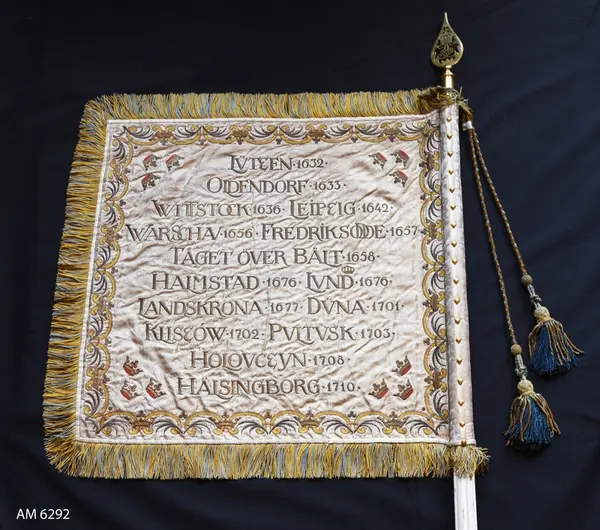 LVTZEN·1632·
OLDENDORF·1633·
WITTSTOCK·1636·LEIPZIG·1642·
WARSCHA·1656·FREDRIKSODDE·1657·
TÅGET ÖVER BÄLT·1658·
HALMSTAD·1676·LVND·1676·
LANDSKRONA·1677·DÜNA·1701·
KLISZÓW·1702·PVLTVSK·1703·
HOLOVCZYN·1708·
HÄLSINGBORG·1710·
AM 6292